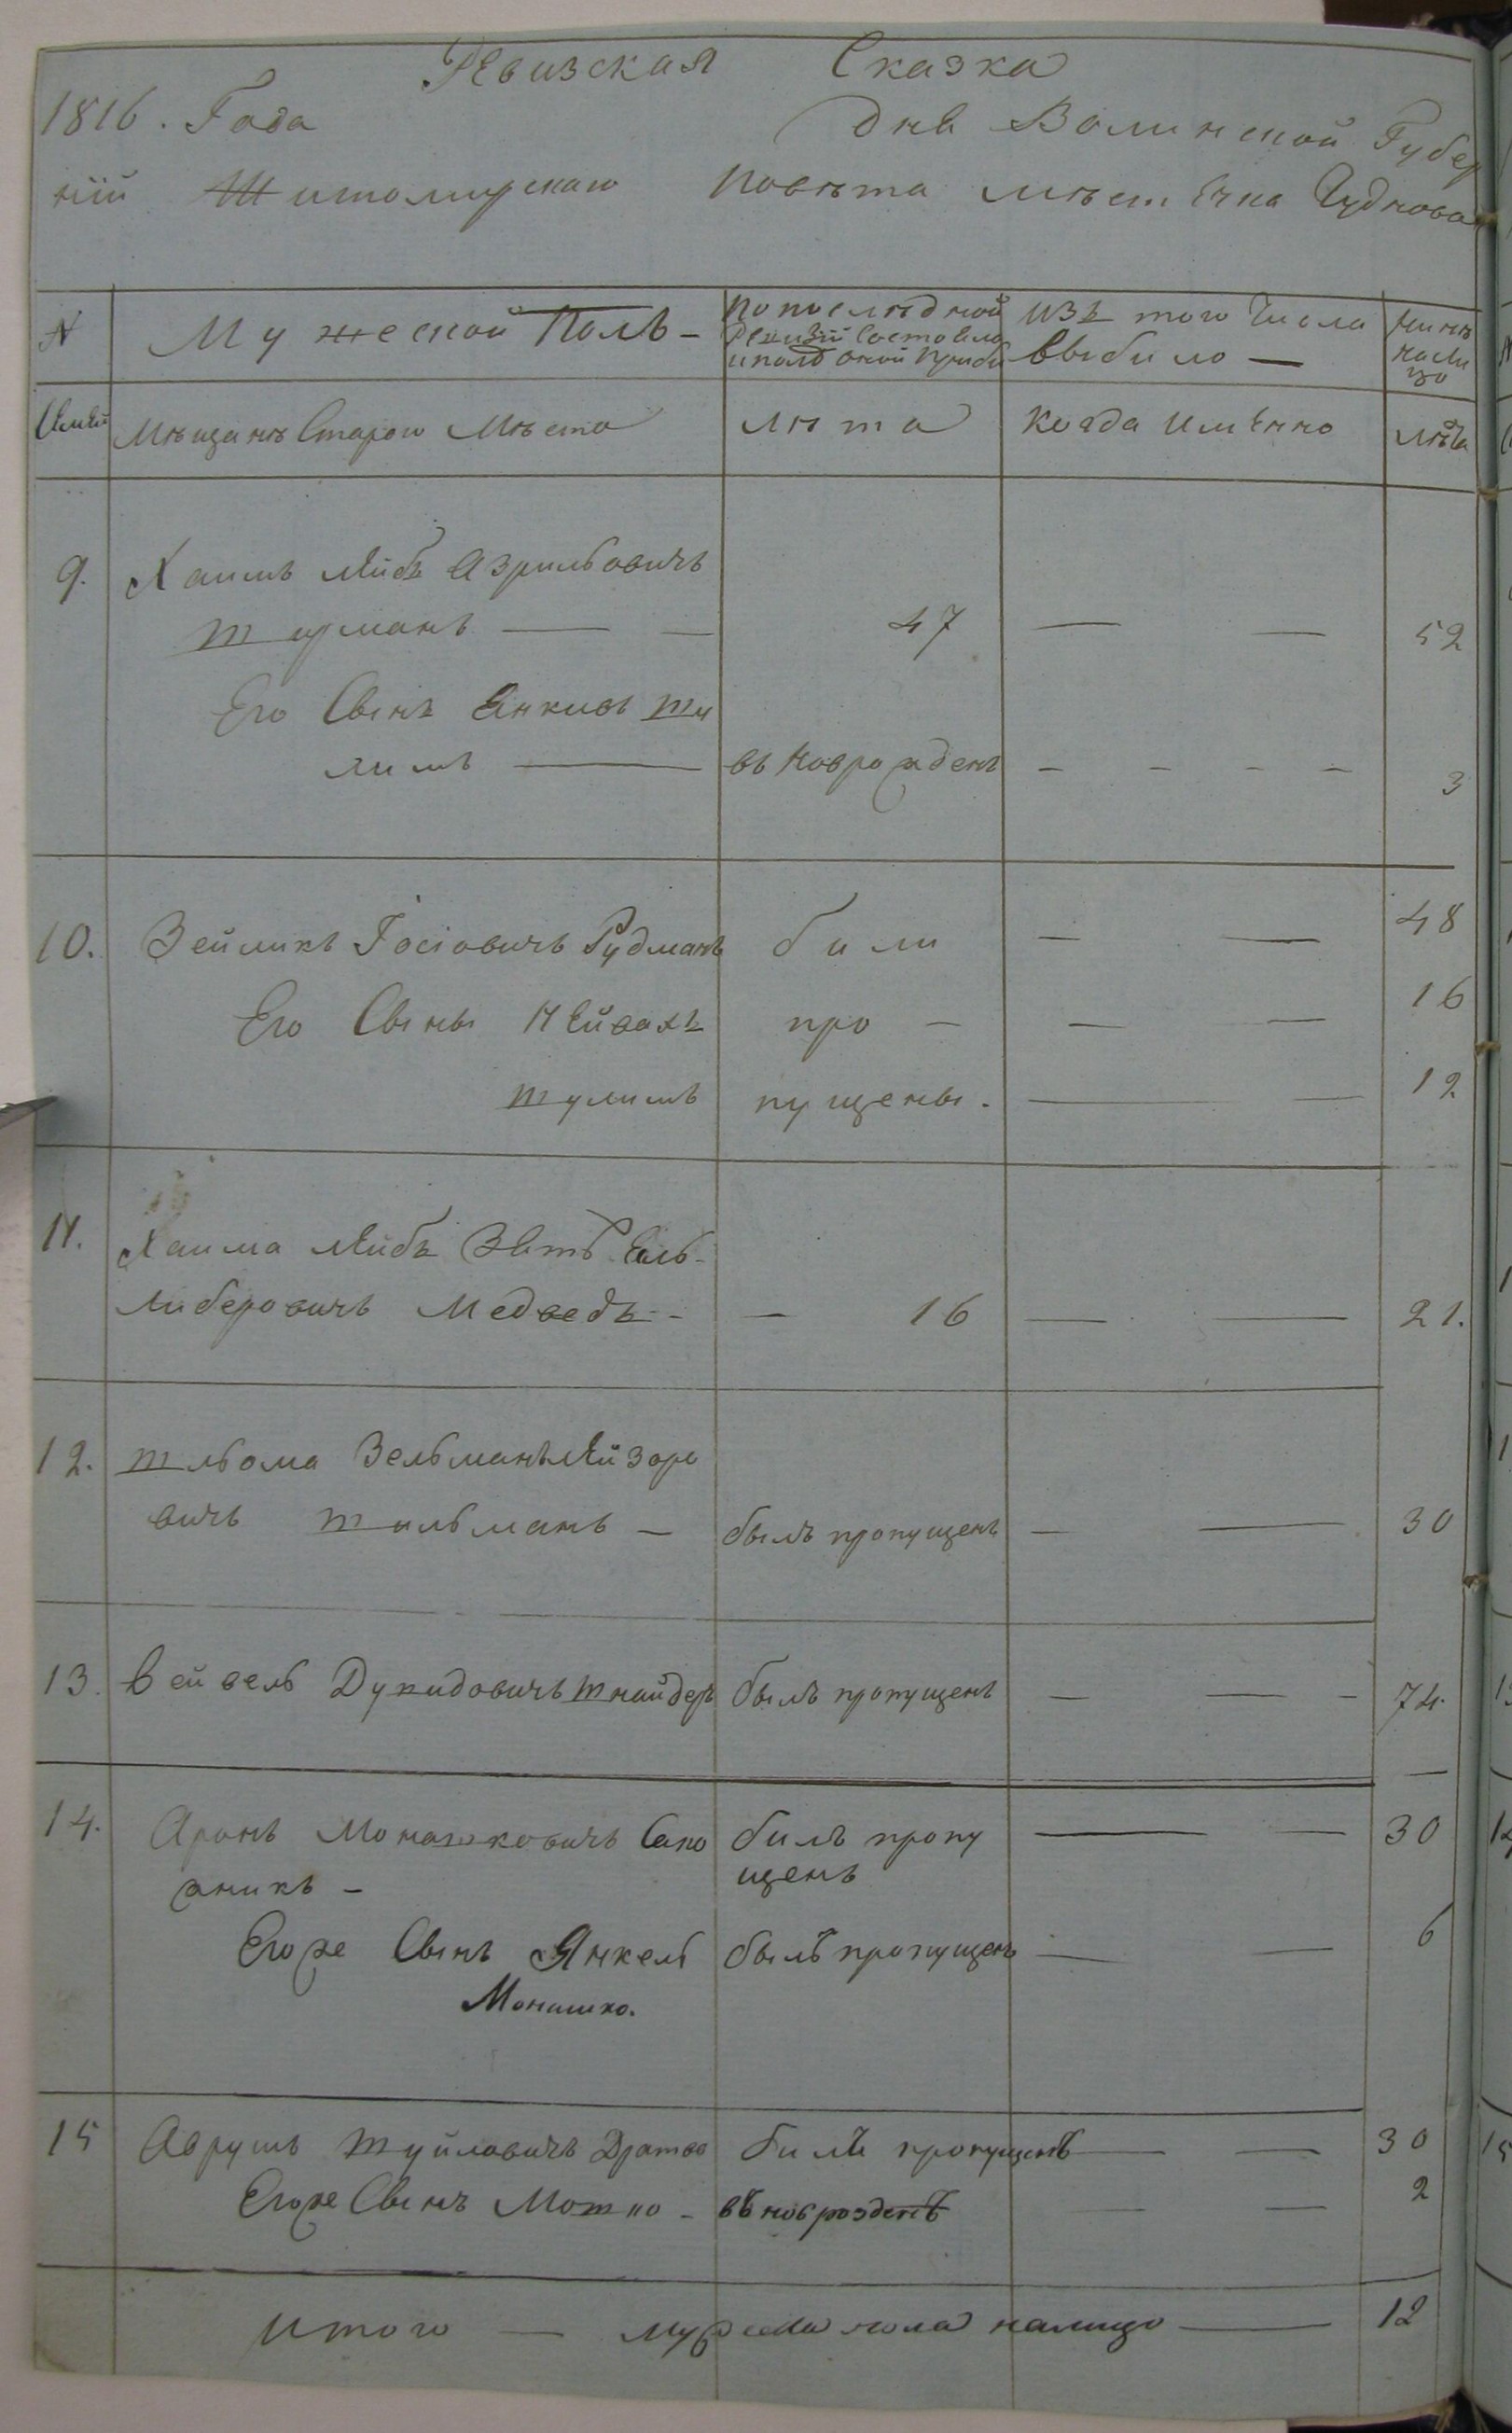 Ревизская Сказка
1816. Года дня Волинской Губер
ніи Житомирскаго Повѣта мѣстечка Чуднова
№ Мужеской Полъ - По послѣдной Ревизіи Состояло и после оной прибы Изъ того Числа выбило — Нинѣ на лицо
Семьи Мѣщанъ Старого Мѣста лѣта когда именно лѣта
9. Хаимъ Лейбъ Азрильовичъ
Шурманъ — — 47 — — 52
Его Сынъ Янкивъ Шу
лимъ — въ новрожденъ - - - - 3
10. Зейликъ Іосіовичъ Рудманъ били — — 48
Его Сыны Нейвахъ про — — — 16
Шулимъ пущены. — — 12
11. Хаима Лейбъ Зять Ель
Либеровичъ Медведъ - — 16 — — 21.
12. Шльома Зельманъ Лейзоро
вичъ Шильманъ — былъ пропущенъ — — 30
13. Вейвель Дукидовичъ Шнайдеръ былъ пропущенъ — — - 74.
14. Аронъ Монашковичъ Сапо билъ пропу — — 30
жникъ - щенъ
Его же Сынъ Янкель былъ пропущенъ — — 6
Монишко.
15 Аврумъ Шуйловичъ Дратва билъ пропущенъ — — 30
Его же Сынъ Мошко - въ новрозденъ — — 2
Итого — мужеска пола налицо — 12